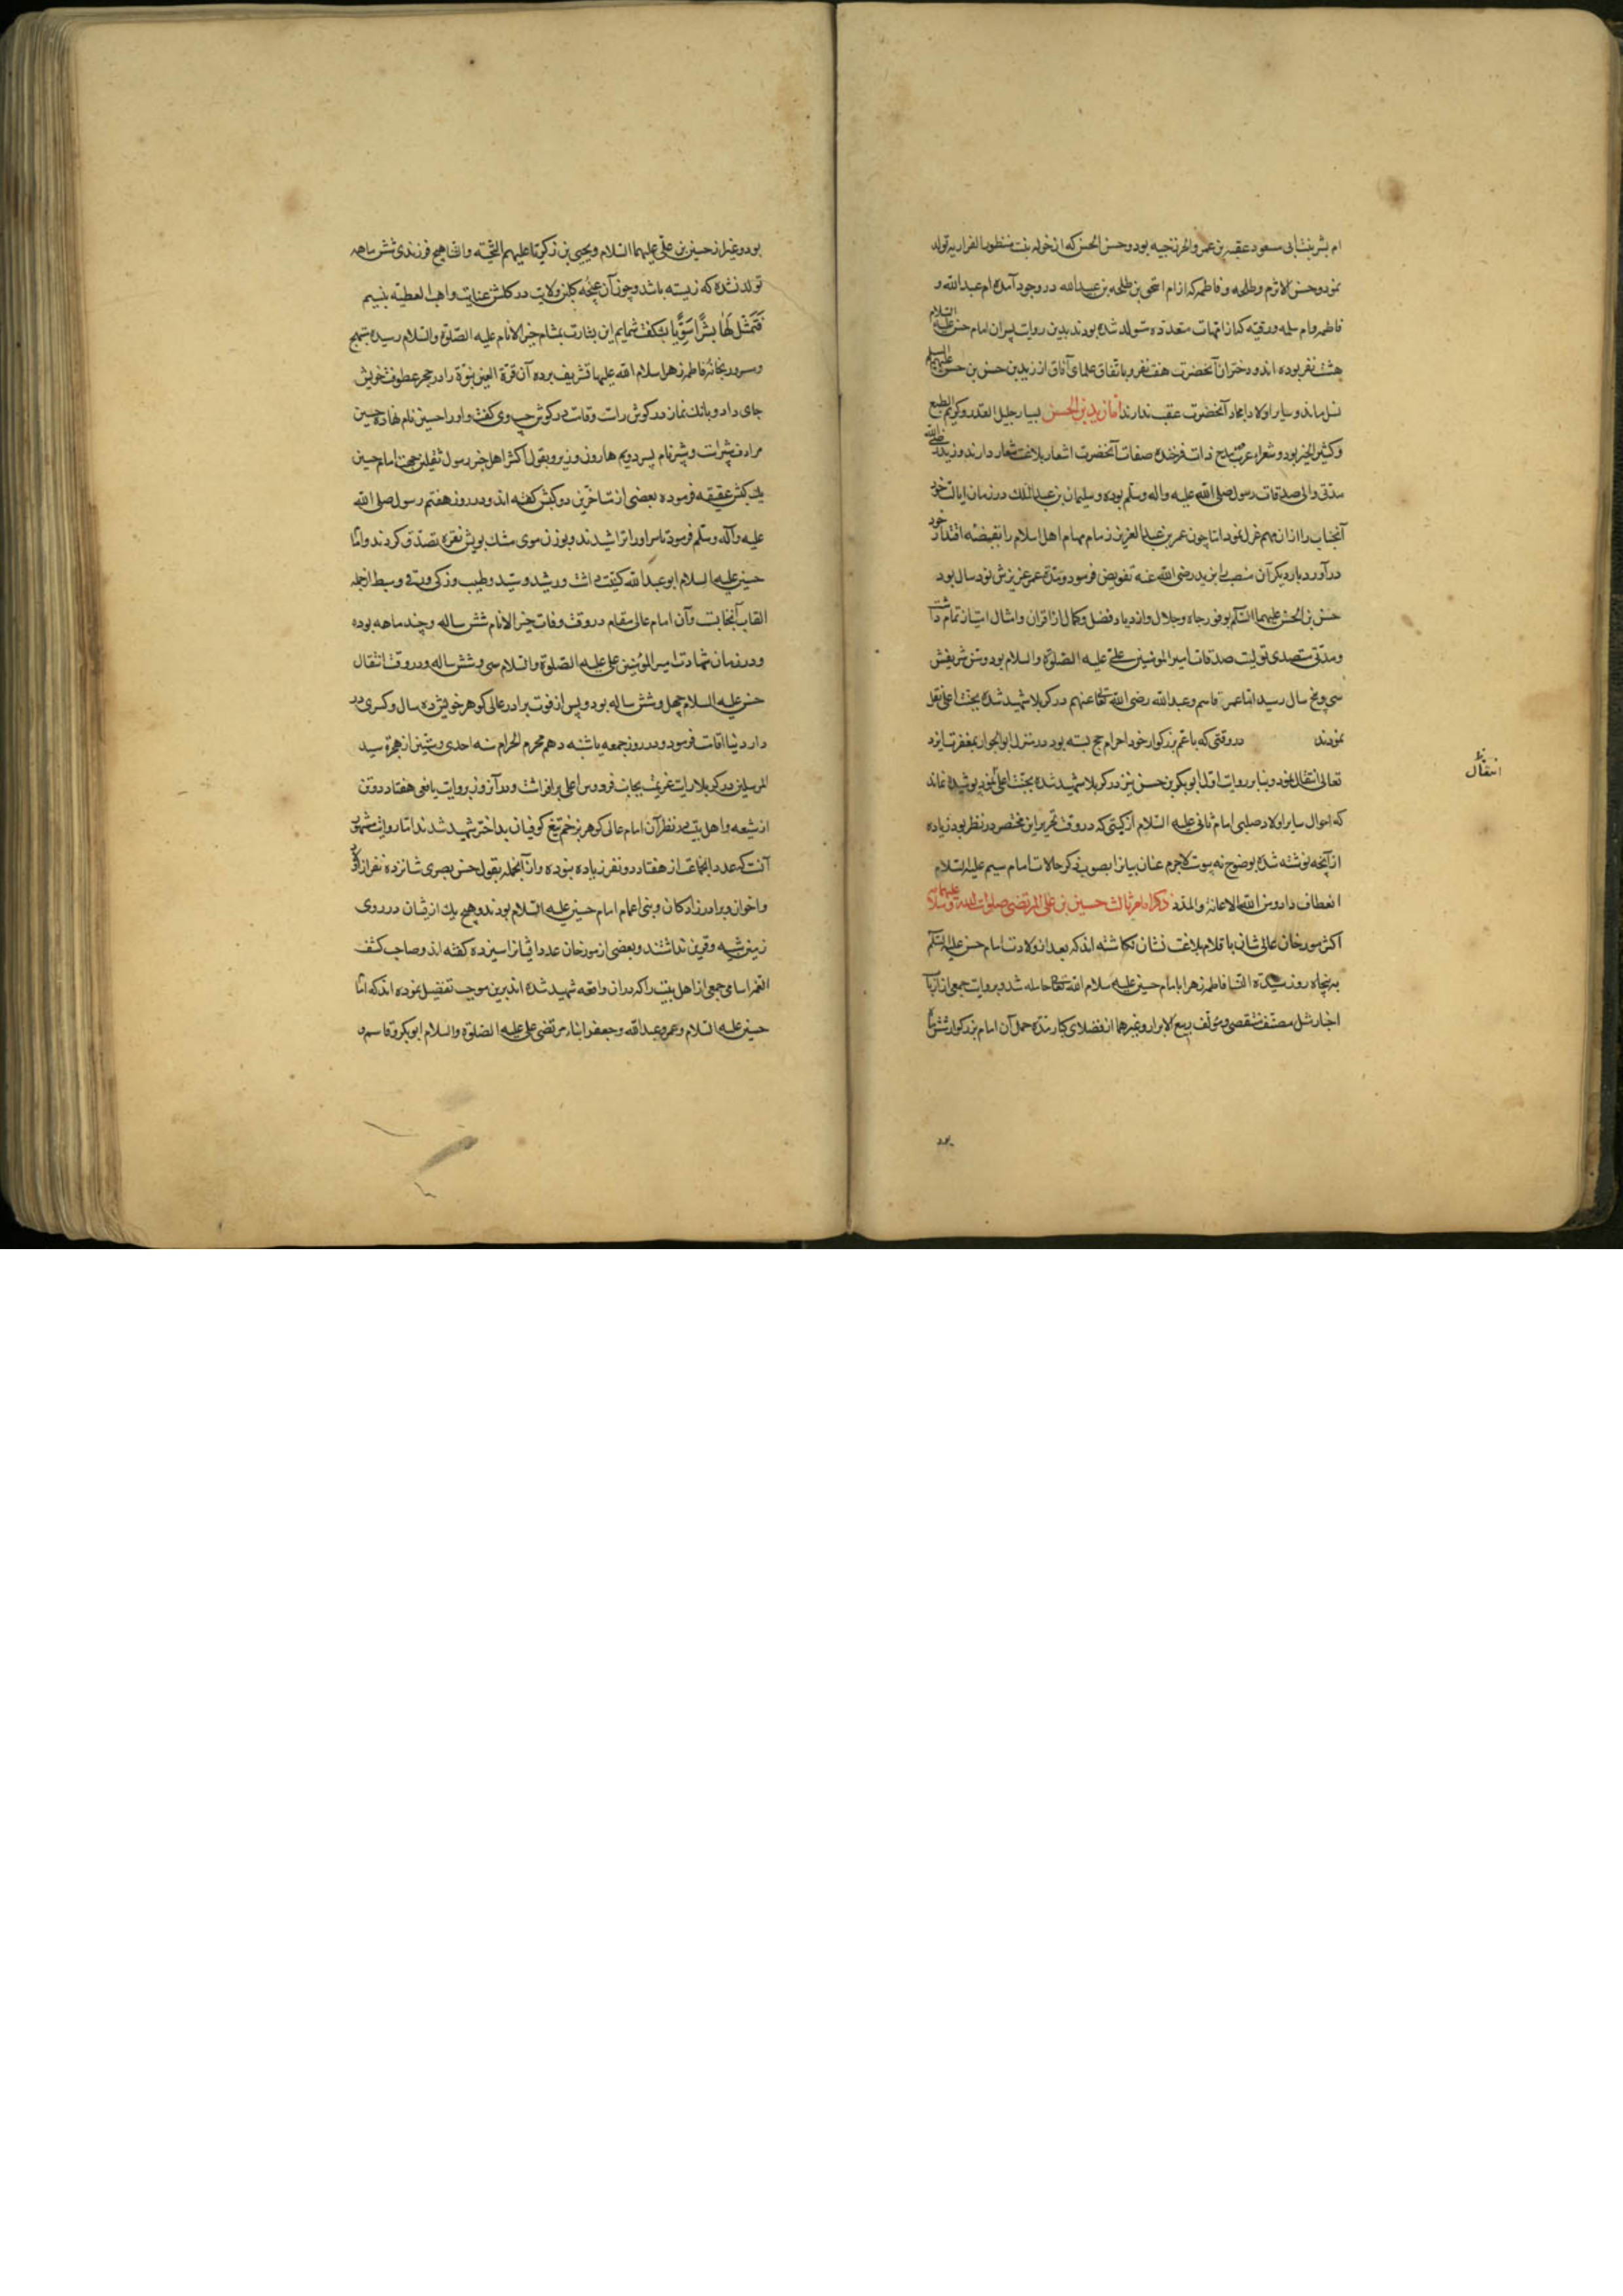 ام بشر بنت ابی مسعود عقبه بن عمرو الخزرجیه بود و حسن بن الحسن که از خوله بنت منظور الفزاریه تولد
نمود و حسن الاثرم و طلحه و فاطمه که از ام اسحق بن طلحه بن عبیدالله در وجود آمده ام عبدالله و
فاطمه و ام سلمه و رقیه که از امهات متعدده متولد شده بودند بدین روایت پسران امام حسن علیه السلام
هشت نفر بوده‌اند و دختران آنحضرت هفت نفر و باتفاق علمای آفاق از زید بن حسن و حسن بن حسن علیهم السلام
نسل ماند و سایر اولاد امجاد آنحضرت عقب ندارند اما زید بن الحسن بسیار جلیل القدر و کریم الطبع
و کثیر الخیر بود و شعراء عرب در مدح ذات فرخنده صفات آنحضرت اشعار بلاغت شعار دارند و زید رضی الله
مدتی والی صدقات رسول صلی الله علیه و اله وسلم بوده و سلیمان بن عبدالملک در زمان ایالت خود
آنجناب را از آن مهم عزل نمود اما چون عمر بن عبدالعزیز زمام مهام اهل اسلام را بقبضه اقتدار خود
درآورد بار دیگر آن منصب را بزید رضی الله عنه تفویض فرمود و مدة عمر عزیزش نود سال بود
حسن بن الحسن علیهما السلم بوفور جاه و جلال و ازدیاد فضل و کمال از اقران و امثال امتیاز تمام داشت
و مدتی متصدی تولیت صدقات امیر المومنین علی علیه الصلوة والسلام بود و سن شریفش
سی و پنج سال رسید اما عمر و قاسم و عبدالله رضی الله تعالی عنهم در کربلا شهید شده بجنت اعلی نقل
نمودند در وقتی که با عم بزرکوار خود احرام حج بسته بود در منزل ابوا بجوار مغفرت ایزد
تعالی انتقال نمود و بنابر روایت اول ابوبکر بن حسن نیز در کربلا شهید شده بجنت اعلی نمود پوشیده نماند
انتقال
که احوال سایر اولاد صلبی امام ثانی علیه السلام از کتبی که در وقت تحریر این مختصر در نظر بود زیاده
از آنچه نوشته شده بوضوح نه پیوست لاجرم عنان بیانرا بصوب ذکر حالات امام سیم علیه السلام
انعطاف داد و من الله الاعانة والمدد ذکر امام ثالث حسین بن علی المرتضی صلوات الله و سلامه علیهما
اکثر مورخان عالی شان باقلام بلاغت نشان نکاشته‌اند که بعد از ولادت امام حسن علیه السلم
به پنجاه روز سیدة النسا فاطمه زهرا بامام حسین علیه سلام الله تعالی حامله شد و بروایت جمعی از ارباب
اخبار مثل مصنف مستقصی و مؤلف ربیع الابرار و غیرهما از فضلای کبار مدة حمل آن امام بزرکوار شش ماه
بود
بود و غیر از حسین بن علی علیهما السلام و یحیی بن زکریا علیهم التحیة والثنا هیچ فرزندی شش ماهه
تولد نشده که زیسته باشد و چون آن غنچه کلبن ولایت در کلشن عنایت واهب العطیه بنسیم
فَتَمَثَّلَ لَها بَشَرًا سَوِیًّا بشکفت شمایم این بشارت بمشام خیر الانام علیه الصلوة والسلام رسیده مبتهج
و مسرور بخانه فاطمه زهرا سلام الله علیها تشریف برده آن قرة العین نبوة را در حجر عطوفت خویش
جای داد و بانك نماز در کوش راست و قامت در کوش چپ وی کفت و او را حسین نام نهاد و حسین
مرادف شبیر است و شبیر نام پسر دویم هارون وزیر و بقول اکثر اهل خبر رسول ثقلین جهت امام حسین
یك کبش عقیقه فرموده بعضی از متاخرین دو کبش کفته‌اند و در روز هفتم رسول صلی الله
علیه وآله وسلم فرمود تا سر او را تراشیدند و بوزن موی مشك بویش نقره تصدق کردند و امام
حسین علیه السلام ابوعبدالله کنیت داشت و رشید و سید و طیب و زکی و وفی و سبط از جمله
القاب آنجنابست و آن امام عالی مقام در وقت وفات خیر الانام شش ساله و چند ماهه بوده
و در زمان شهادت امیر المؤمنین علی علیه الصلوة والسلام سی و شش ساله و در وقت انتقال
حسن علیه السلام چهل و شش ساله بود و پس از فوت برادر عالی کوهر خویش ده سال و کسری در
دار دنیا اقامت فرمود و در روز جمعه یا شنبه دهم محرم الحرام سنه احدی و ستین از هجرة سید
المرسلین در کربلا رایت عزیمت بجانب فردوس اعلی برافراشت و در آن روز بروایت یافعی هفتاد و دو تن
از شیعه و اهل بیت در نظر آن امام عالی کوهر بزخم تیغ کوفیان بداختر شهید شدند اما روایت مشهور
آنست که عدد انجماعت از هفتاد و دو نفر زیاده بوده و از آنجمله بقول حسن بصری شانزده نفر از اولاد
و اخوان و برادرزادکان و بنی اعمام امام حسین علیه السلام بودند و هیچ یك از یشان در روی
زمین شبیه و قرین نداشتند و بعضی از مورخان عدد ایشانرا سیزده کفته‌اند و صاحب کشف
الغمه اسامی جمعی از اهل بیت را که در ان واقعه شهید شده‌اند برین موجب تفصیل نموده‌اند که امام
حسین علیه السلام و عمر و عبدالله و جعفر ابناء مرتضی علی علیه الصلوة والسلام ابوبکر و قاسم و